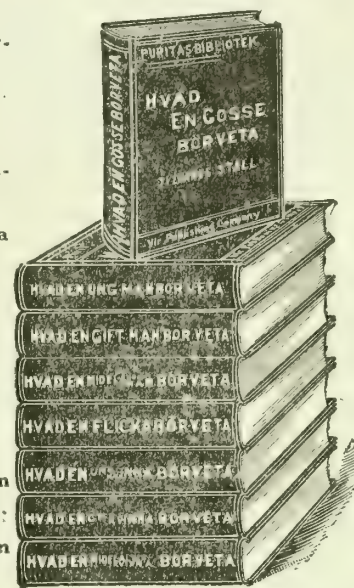 PURITAS-BIBLIOTEK
HVAD
EN GOSSE
BÖR VETA
SYLVANUS STALL
Vir Publishing Company
HVAD EN GOSSE BÖR VETA
HVAD EN UNG MAN BÖR VETA
HVAD EN GIFT MAN BÖR VETA
HVAD EN MAN BÖR VETA
HVAD EN FLICKA BÖR VETA
HVAD EN BÖR VETA
HVAD EN BÖR VETA
HVAD EN BÖR VETA